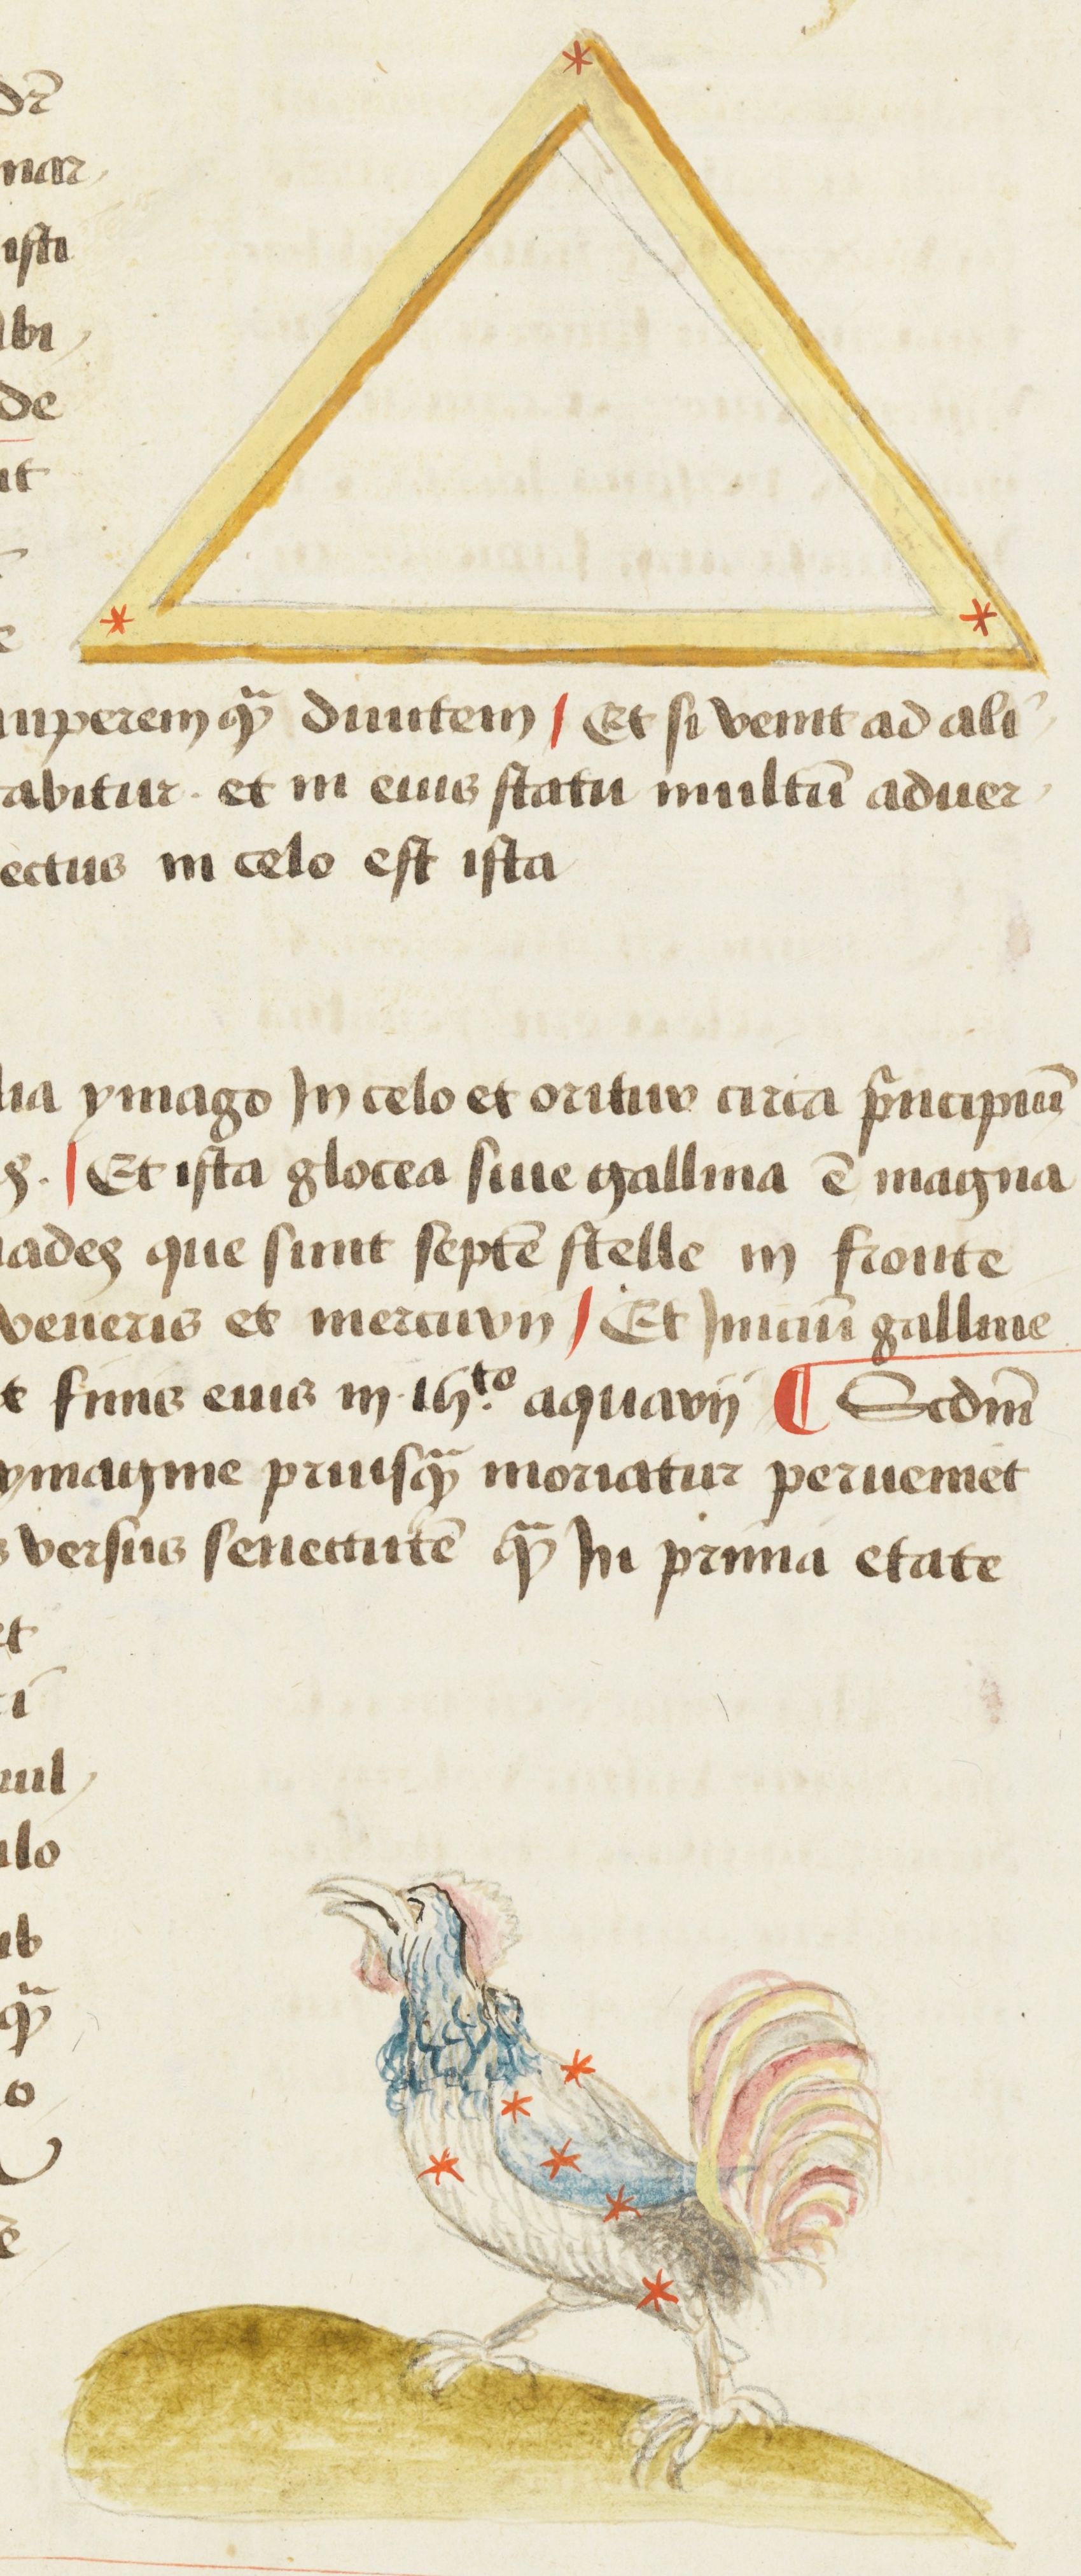 dr̄
nar
isti
ibi
de
ut
uperem qȝ̄ diuitem / Et si venit ad ali
rabitur · et in eius statu multū aduer
ectus in celo est ista
lia ymago In celo et oritur circa p̄ncipiuȝ
Et ista glocea siue gallina ē magna
iades que sunt septē stelle in fronte
veneris et mercurii / Et Iniciū galline
t finis eius in ·16.to aquarij ¶ Scdm̄
ymagine priusqȝ̄ moriatur perueniet
s versus senectutē qȝ̄ In prima etate
et
ri
ul
ulo
ub
qȝ̄
o
ē